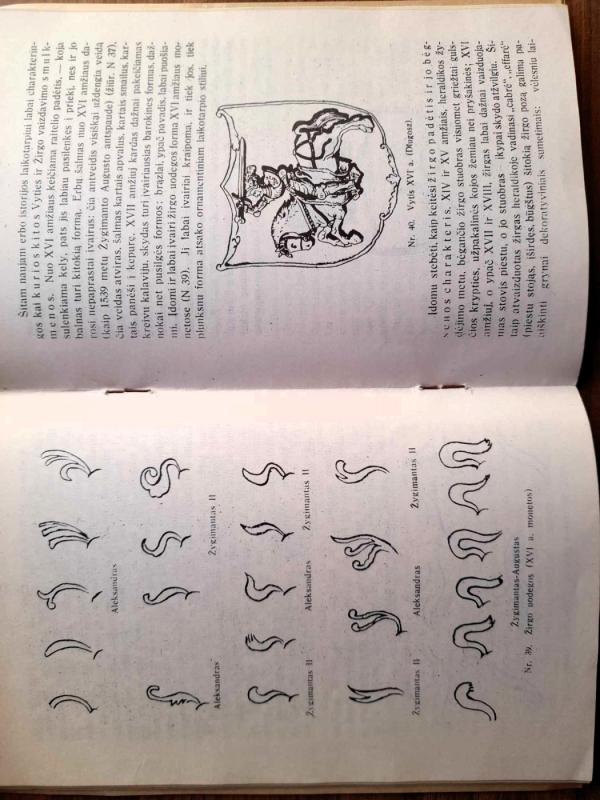 Aleksandras
Aleksandras Žygimantas II
Žygimantas II Aleksandras Žygimantas II
Žygimantas II Aleksandras Žygimantas II
Žygimantas-Augustas
Nr. 39. Žirgo uodegos (XVI a. monetos)
Šitam naujami erbo istorijos laikotarpiui labai charakterin-
gos kai kurios kitos Vyties ir Žirgo vaizdavimo smulk-
menos. Nuo XVI amžiaus keičiama raitelio padėtis, — koja
sulenkiama kely, pats jis labiau pasilenkęs į priekį, nes ir jo
balnas turi kitokią formą. Erbų šalmas nuo XVI amžiaus da-
rosi nepaprastai įvairus: čia antveidis visiškai uždengia veidą
(kaip 1539 metų Zygimanto Augusto antspaude) (žiūr. N 37),
čia veidas atviras, šalmas kartais apvalus, kartais smailus, kar-
tais panėši į kepurę. XVII amžiuj kardas dažnai pakeičiamas
kreivu kalaviju, skydas turi įvairiausias barokines formas, daž-
nokai net pusilgės formos; brązlai, ypač pavadis, labai puošia-
mi. Įdomu ir labai įvairi žirgo uodegos forma XVI amžiaus mo-
netose (N 39). Ji labai įvairiai kraipoma, ir tiek jos, tiek
plunksnų forma atsako ornamentiniam laikotarpio stiliui.
Nr. 40. Vytis XVI a. (Dlugosz).
Įdomu stebėti, kaip keitėsi žirgo padėtis ir jo bėg-
senos charakteris. XIV ir XV amžiais, heraldikos žy-
dėjimo metu, bėgančio žirgo stuobras visuomet griežtai guls-
čios krypties, užpakalinės kojos žemiau nei pryšakinės; XVI
amžiuj, o ypač XVII ir XVIII, žirgas labai dažnai vaizduoja-
mas stovįs piestu, o jo stuobras — įkypai skydo atžvilgiu. Ši-
taip atvaizduotas žirgas heraldikoje vadinasi „cabré“ „effaré“
(piestu stojąs, iširdęs, būgštus) šitokią žirgo pozą galima pa-
aiškinti grynai dekoratyviniais sumetimais: vėlesniu lai-